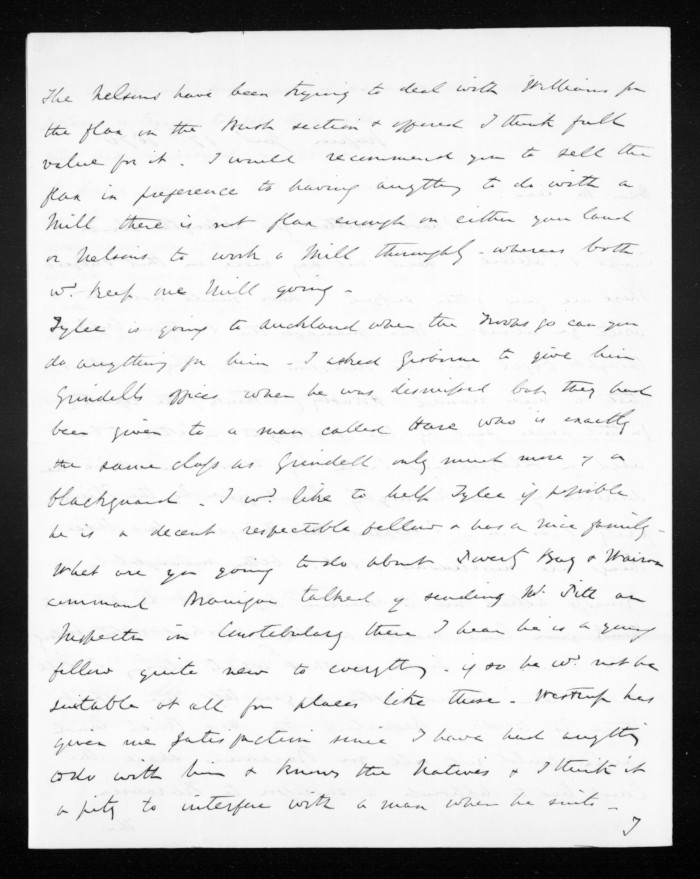 The Nelsons have been trying to deal with Williams for
the flax on the Bush section & offered I think full
value for it. I would recommend you to sell the
flax in preference to having anything to do with a
Mill there is not flax enough on either your land
or Nelsons to work a Mill thoroughly - whereas both
wd. keep one Mill going -
Tylee is going to Auckland when the Troops go can you
do anything for him - I asked Gisborne to give him
Grindells offices when he was dismissed but they had
been given to a man called Hare who is exactly
the same class as Grindell only much more of a
blackguard - I wd. like to help Tylee if possible
he is a decent respectible fellow & has a nice family -
What are you going to do about Poverty Bay & Wairoa
command Branigan talked of sending Mr. Pitt an
Inspector in Constabulary there I hear he is a young
fellow quite new to everything - if so he wd. not be
suitable at all for places like these - Westrup has
given me satisfaction since I have had anything
to do with him & knows the Natives & I think it
a pity to interfere with a man when he suits -
I